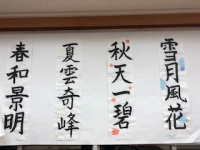 雪月風花
秋天一碧
夏雲奇峰
春和景明